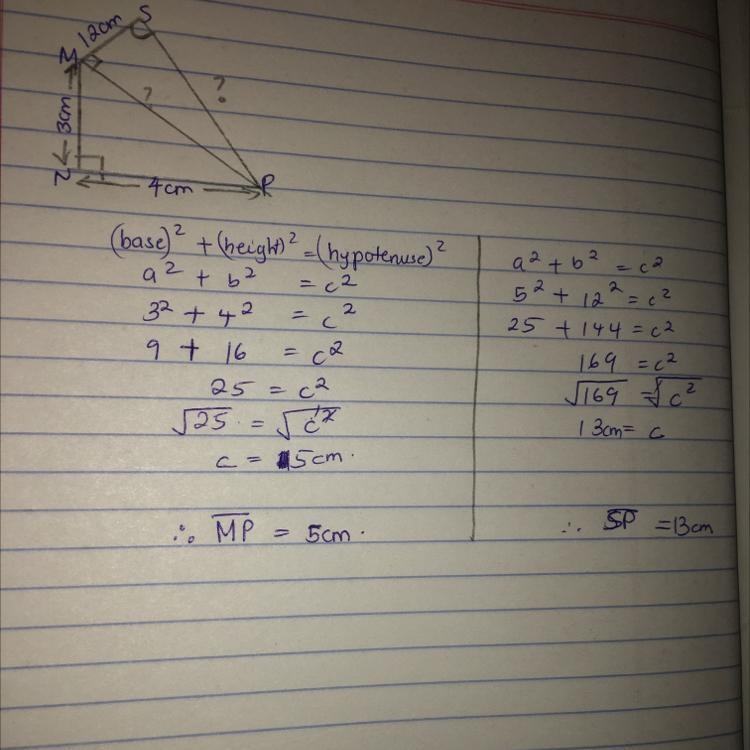 S
12cm
M
?
?
3cm
N
4cm
P
(base)² + (height)² = (hypotenuse)²
a² + b² = c²
3² + 4² = c²
9 + 16 = c²
25 = c²
√25 = √c²
c = 5cm.
∴ M̅P̅ = 5cm.
a² + b² = c²
5² + 12² = c²
25 + 144 = c²
169 = c²
√169 = √c²
13cm = c
∴ S̅P̅ = 13cm